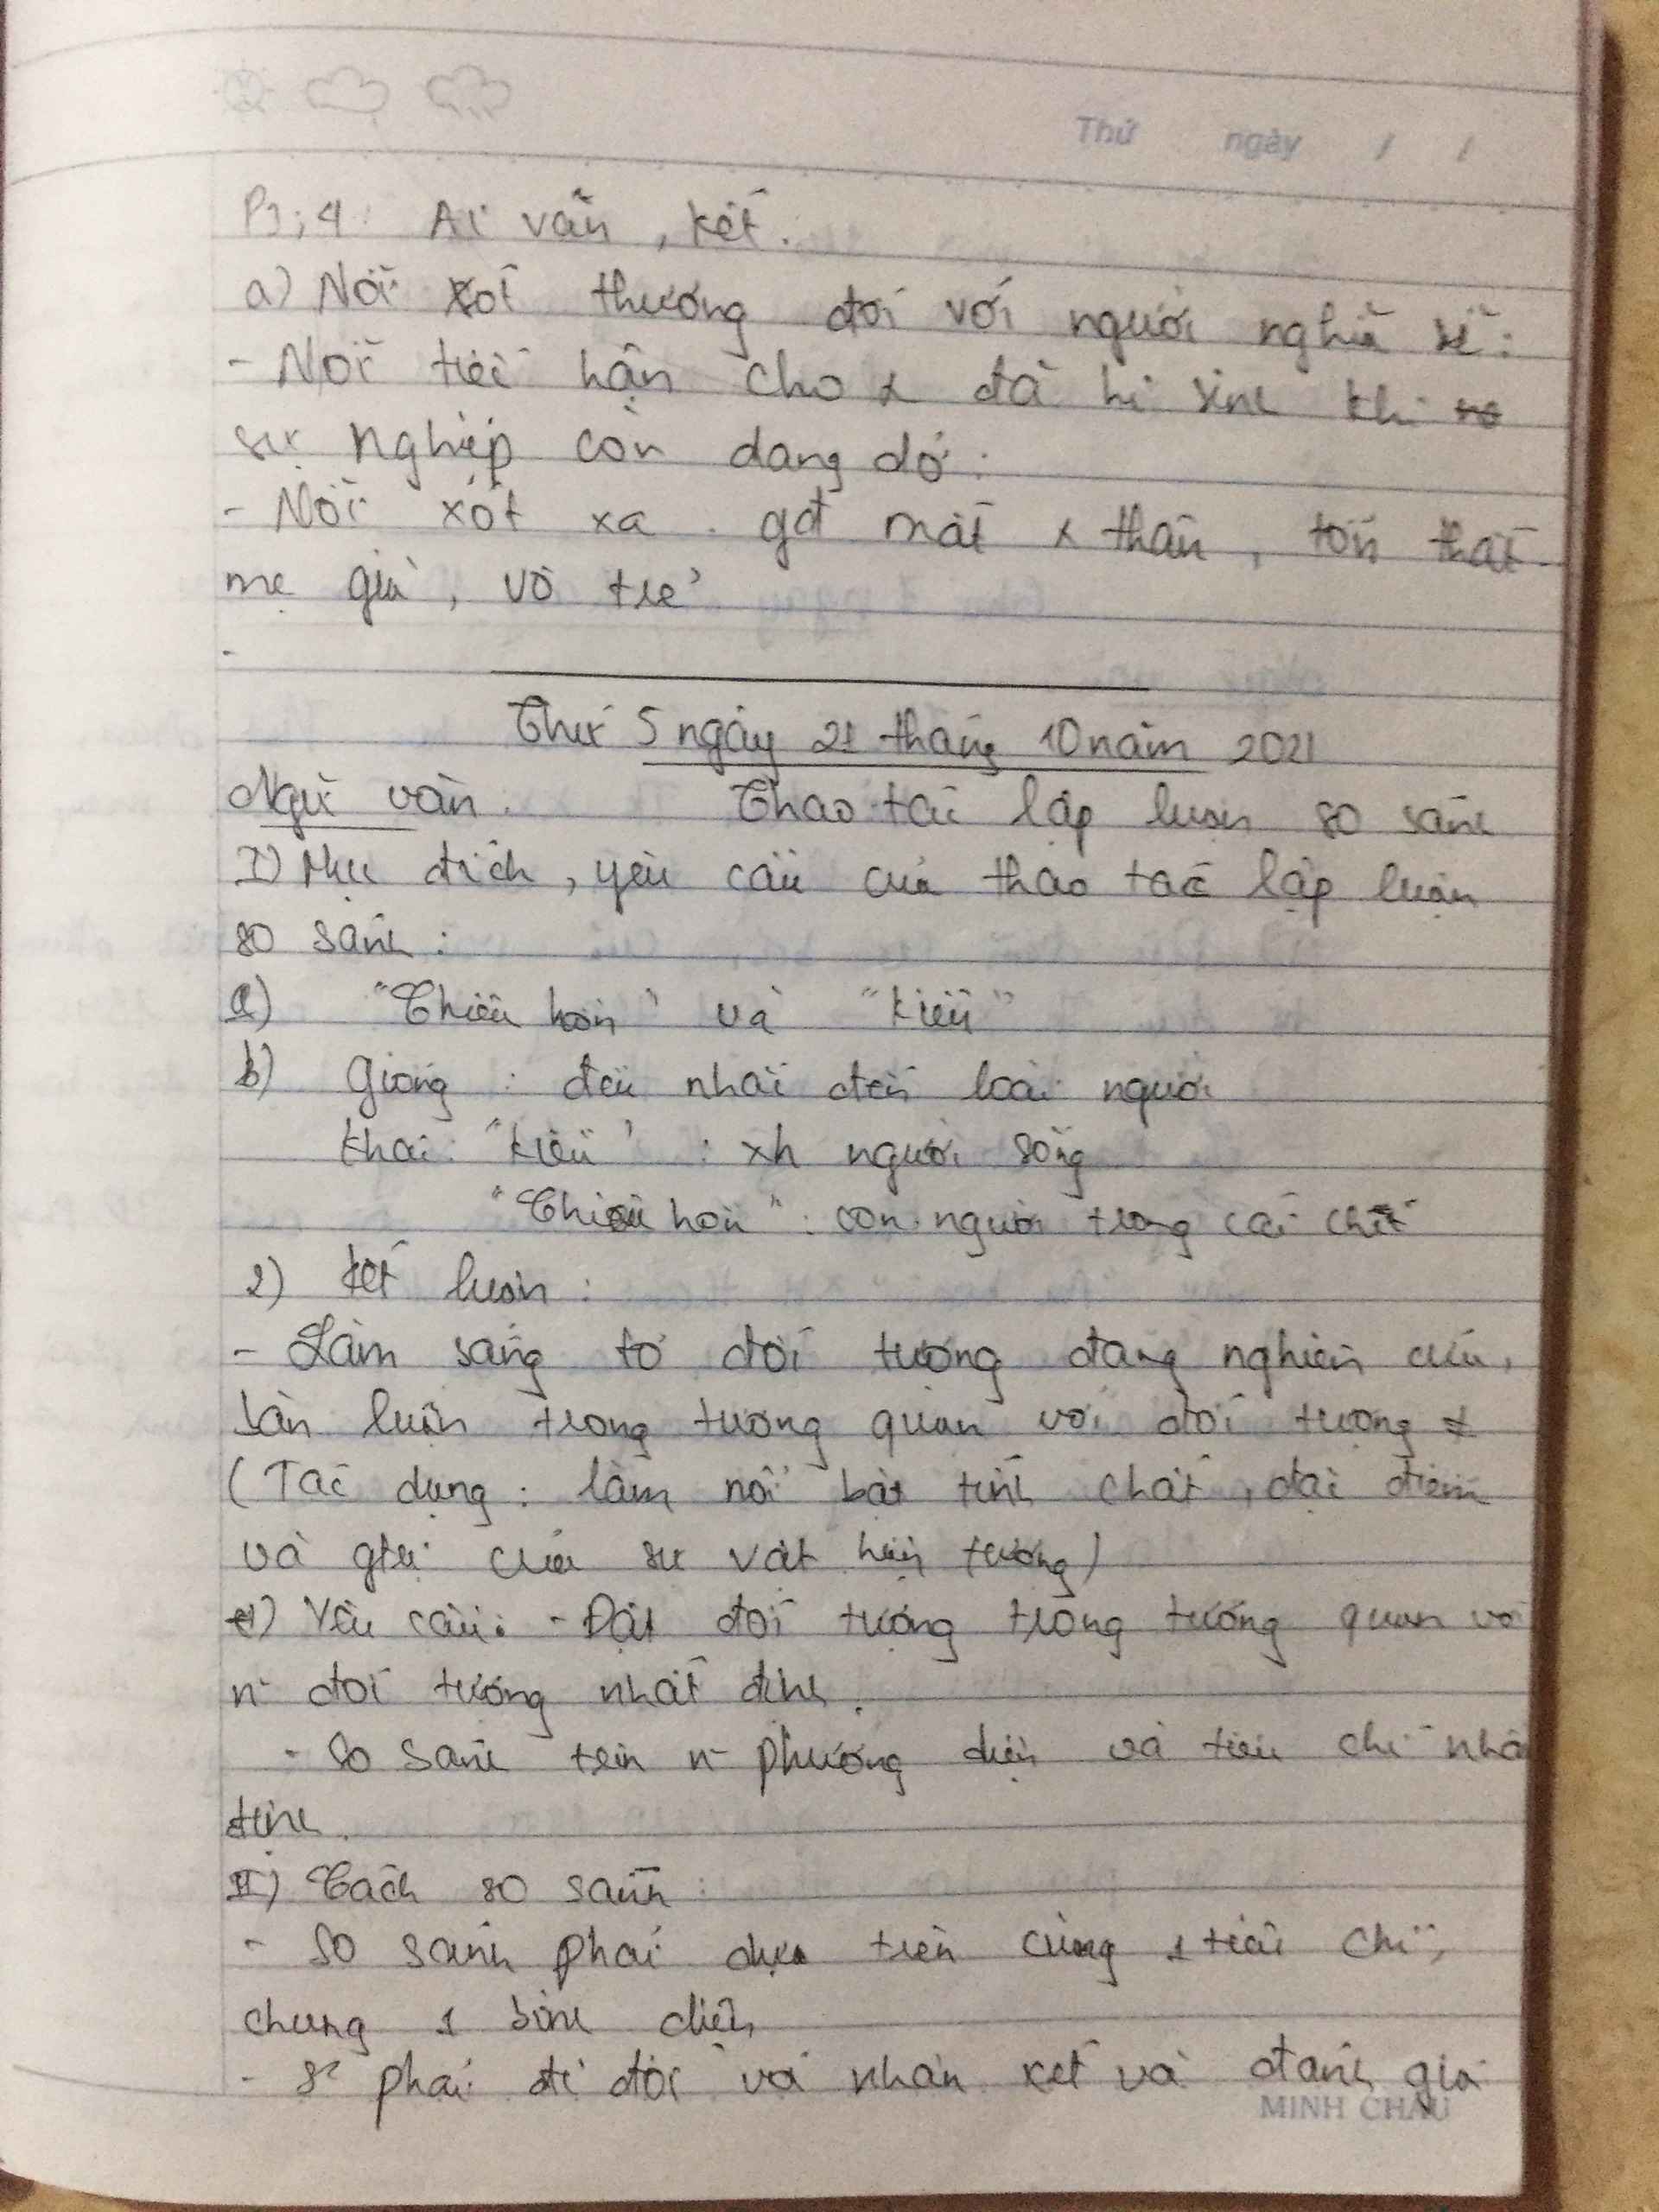 Thứ ngày / /
P3;4: Ai vãn, kết.
a) Nỗi xót thương đối với người nghĩa sĩ:
- Nỗi tiếc hận cho x đã hi sinh khi
sự nghiệp còn dang dở.
- Nỗi xót xa gđ mất x thân, tổn thất
mẹ già, vợ trẻ
-
Thứ 5 ngày 21 tháng 10 năm 2021
Ngữ văn. Thao tác lập luận so sánh
I) Mục đích, yêu cầu của thao tác lập luận
so sánh:
a) "Chiêu hồn" và "Kiều"
b) Giống: đều nhắc đến loài người
Khác: "Kiều": xh người sống
"Chiêu hồn": con người trong cái chết
2) Kết luận:
- Làm sáng tỏ đối tượng đang nghiên cứu,
bàn luận trong tương quan với đối tượng ≠
(Tác dụng: làm nổi bật tính chất, đặc điểm
và gtrị của sự vật hiện tượng)
c) Yêu cầu: - Đặt đối tượng trong tương quan với
n~ đối tượng nhất định.
- So sánh trên n~ phương diện và tiêu chí nhất
định.
II) Cách so sánh:
- So sánh phải dựa trên cùng 1 tiêu chí,
chung 1 bình diện
- s² phải đi đôi với nhận xét và đánh giá
MINH CHÂU